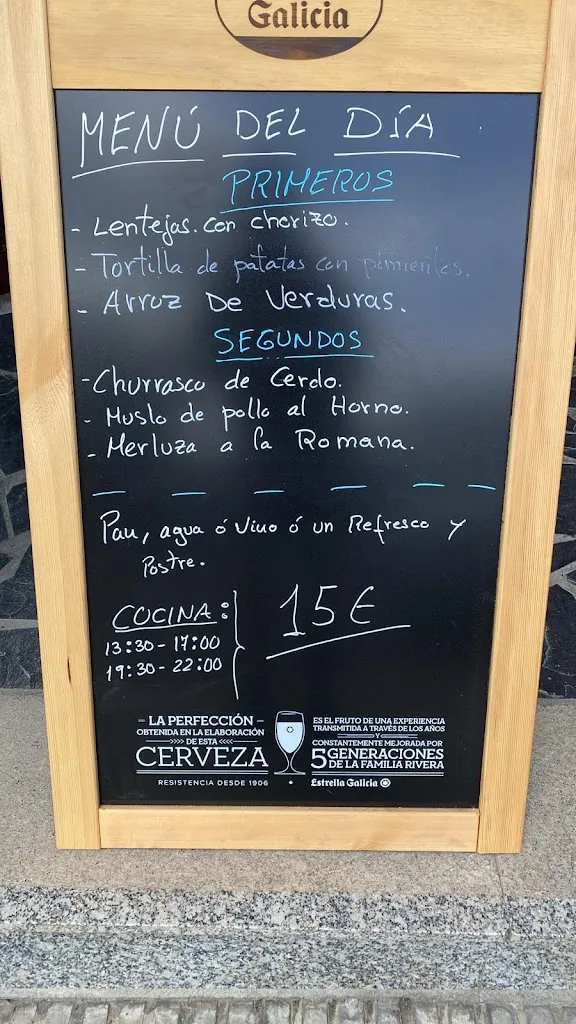 Galicia
MENÚ DEL DÍA
PRIMEROS
- Lentejas con chorizo.
- Tortilla de patatas con pimientos.
- Arroz De Verduras.
SEGUNDOS
- Churrasco de Cerdo.
- Muslo de pollo al Horno.
- Merluza a la Romana.
Pan, agua ó Vino ó un Refresco y
Postre.
COCINA:
13:30 - 17:00
19:30 - 22:00
15€
– LA PERFECCIÓN –
OBTENIDA EN LA ELABORACIÓN
>>>> DE ESTA <<<<
CERVEZA
RESISTENCIA DESDE 1906
ES EL FRUTO DE UNA EXPERIENCIA
TRANSMITIDA A TRAVÉS DE LOS AÑOS
Y
CONSTANTEMENTE MEJORADA POR
5 GENERACIONES
DE LA FAMILIA RIVERA
Estrella Galicia